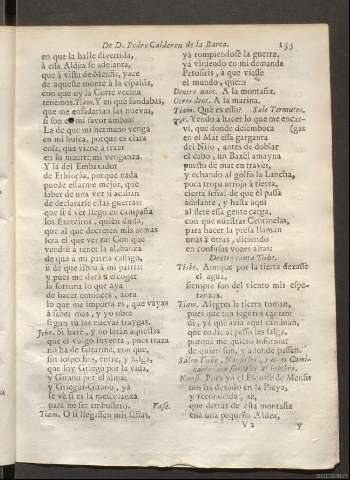 De D. Pedro Calderon de la Barca. 155
en que la halle divertida,
à essa Aldea se adelanta,
que à vista de Menfis, yace
de aqueste monte à la espalda,
con que oy la Corte vecina
tenemos. Tiam. Y en què fundabas,
que me enfadarian las nuevas,
si son en mi favor ambas?
La de que mi hermano venga
en mi busca, porque es clara
cosa, que viene à traer
en su muerte mi venganza.
Y la del Embaxador
de Ethiopia, porque nada
puede estarme mejor, que
saber de una vez si acaban
de declararse estas guerras:
que si à vèr llego en campaña
los Exercitos, quièn duda,
que al que decreten mis armas
serà el que venza: Con que
vendrè à tener la alabanza
de que à mi patria castigo,
ù de que libro à mi patria:
y pues me darà à escoger
la fortuna lo que aya
de hacer entonces, aora
lo que me importa es, que vayas
à saber mas, y yo obre
segun tù las nuevas traygas.
Jebn. Sì harè, y no seràn aquellas
que el vulgo inventa, pues traza
no ha de faltarme, con que,
sin sospechas, entre, y salga,
que soy Griego por la vida,
y Gitano por el alma;
y Griegui-Gitano, yà
se vè si es la mezcolanza
para no ser embustero. Vase.
Tiam. O si llegassen mis sañas,
yà rompiendose la guerra,
yà viniendo en mi demanda
Petosiris, à que viesse
el mundo, que:::
Dentro unos. A la montaña.
Otros dent. A la marina.
Tiam. Què es esso? Sale Termutes.
Ter. Yendo à hacer lo que me encar-
vi, que donde desemboca (gas
en el Mar essa garganta
del Nilo, antes de doblar
el cabo, un Baxèl amayna
puesto de mar en travès,
y echando al golfo la Lancha,
poca tropa arroja à tierra,
cierta señal de que èl passa
adelante, y hasta aqui
al flete essa gente carga,
con que nuestras Centinelas,
para hacer la presa llaman
unas à otras, diciendo
en confusas voces altas:
Dentro canta Tisbe.
Tisbe. Aunque por la tierra dexasse
el agua,
siempre son del viento mis espe-
ranzas.
Tiam. Alegres la tierra toman,
pues que tan seguros cantan:
dì, yà que àzia aqui caminan,
que nadie al passo les salga,
porque me quiero informar
de quien son, y adonde passan.
nos ha dexado en la Playa,
y reconocida, sè,
que detràs de esta montaña
està una pequeña Aldea,
V 2 y